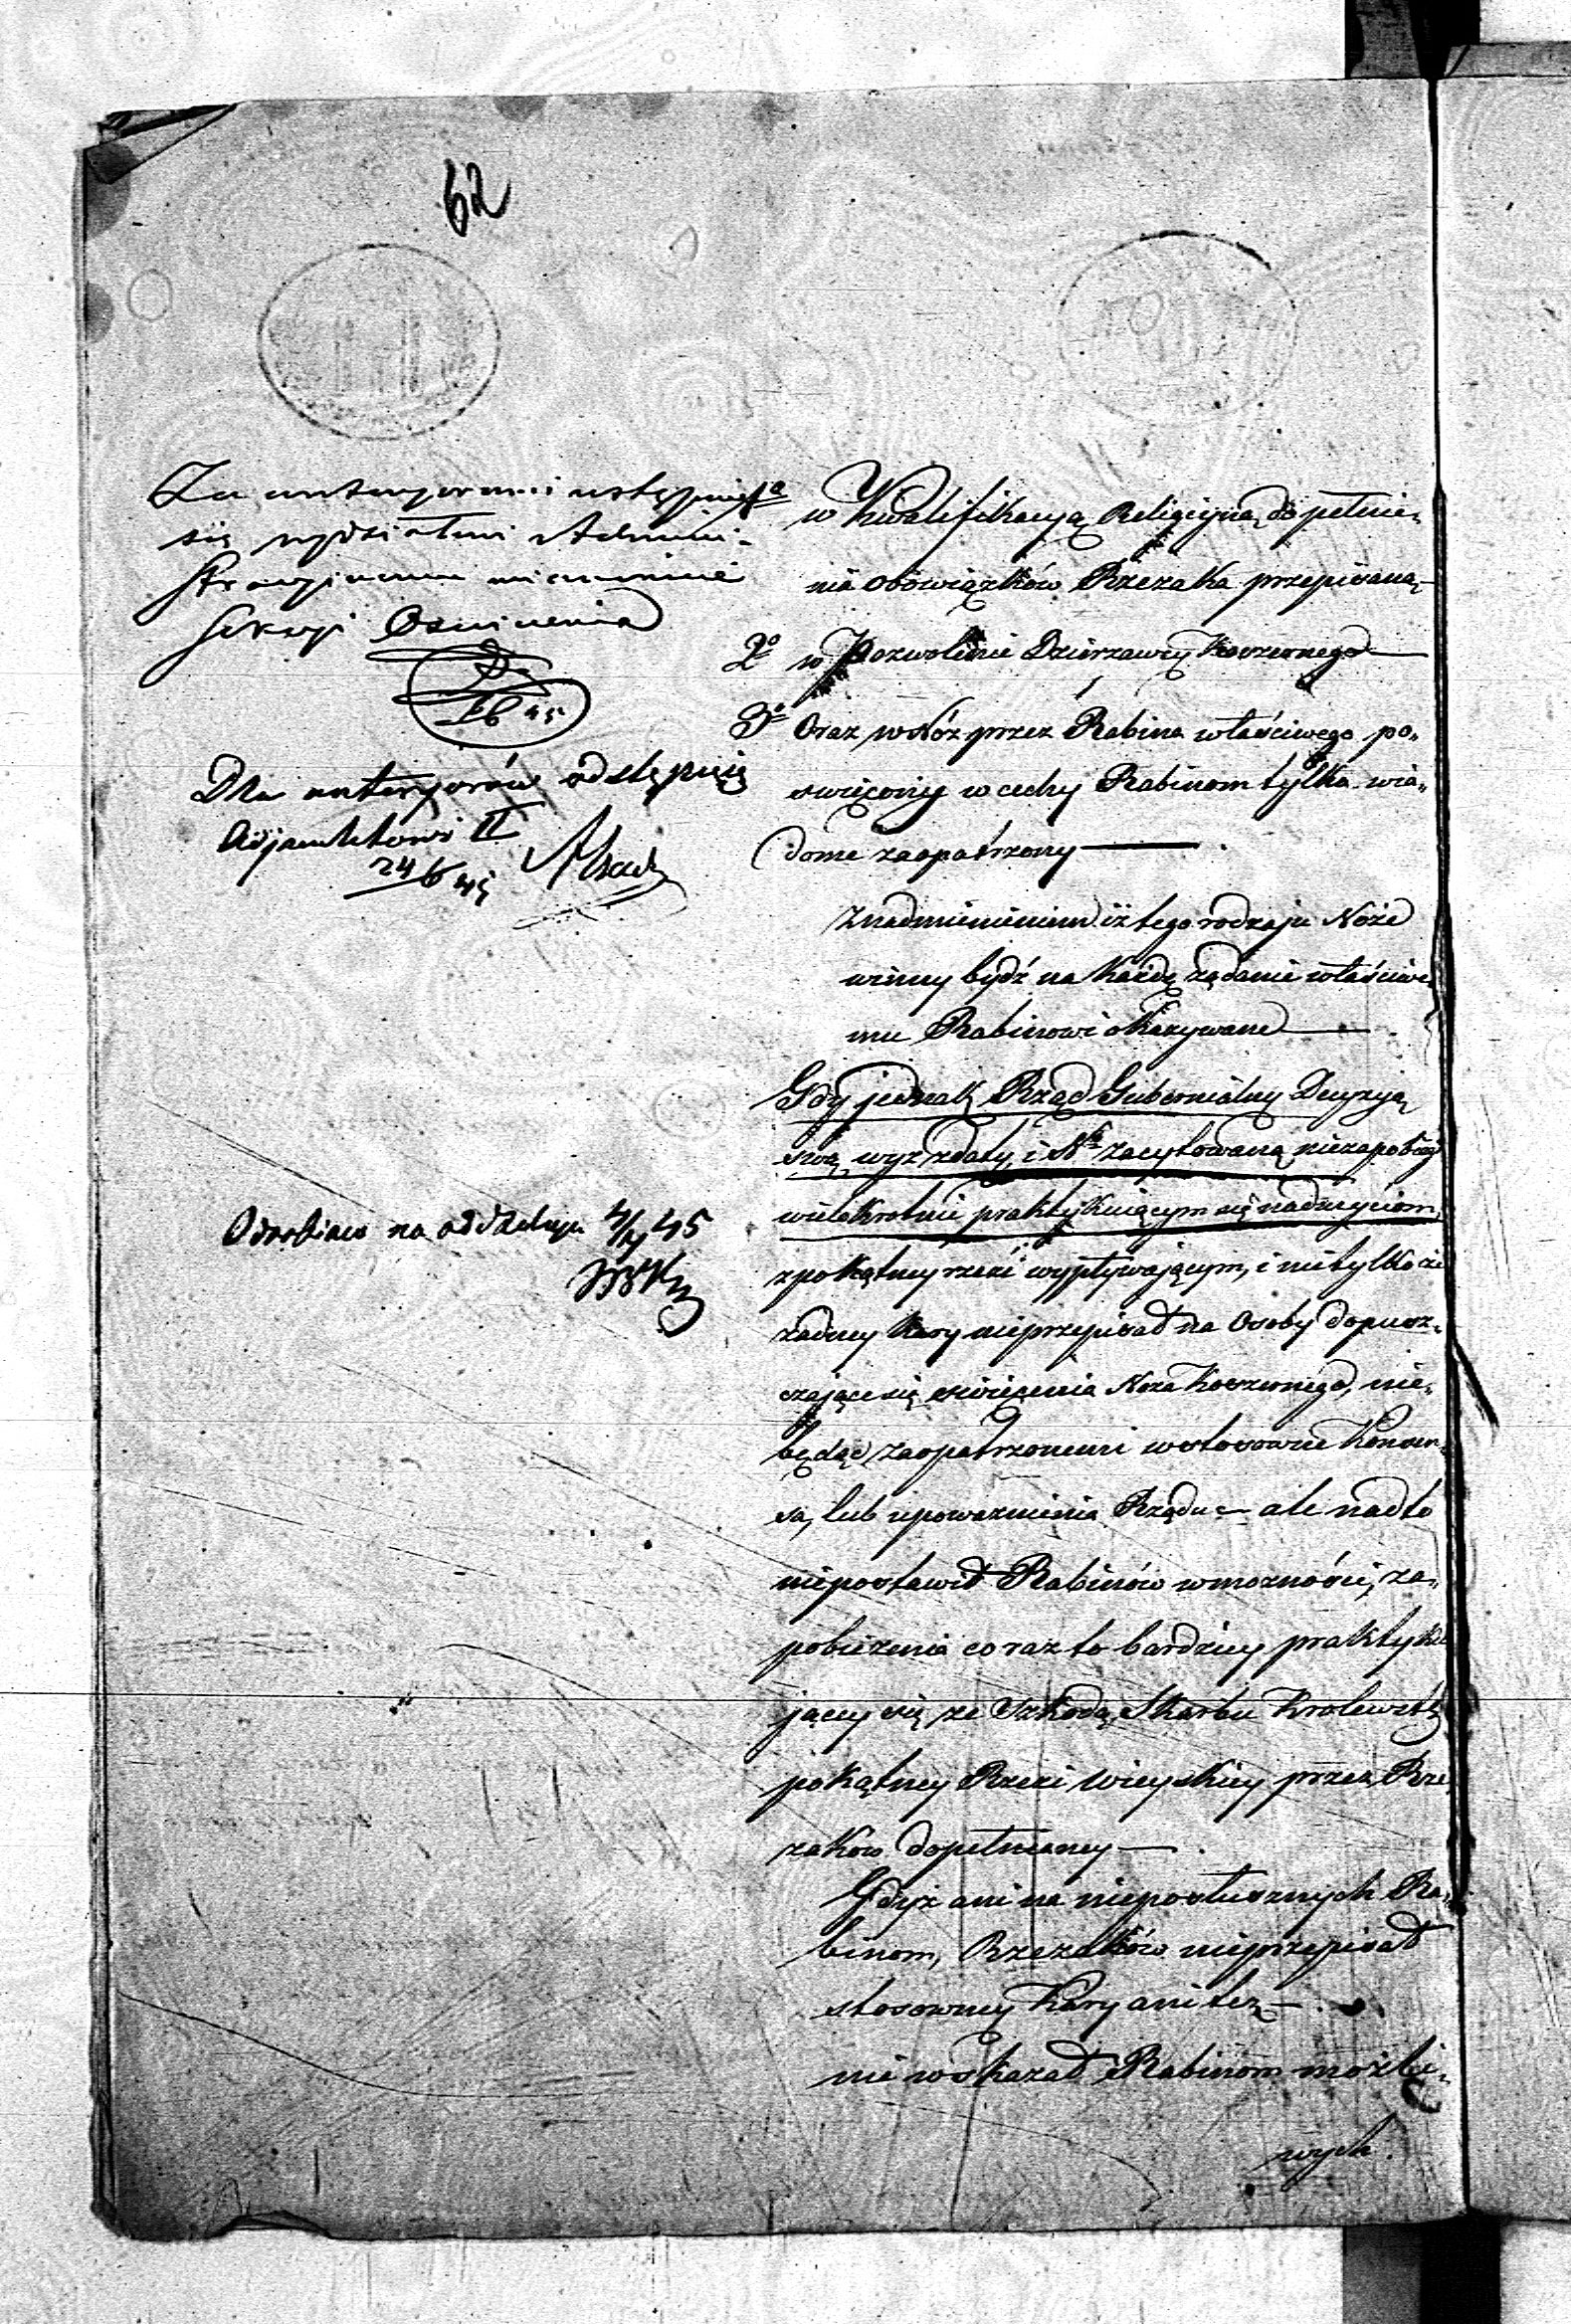 62
się wydziałowi Admini-
Sekcyi
Dla anteryorów odstępuię
Adjunktowi II
24/6 45
4/4 45
1º w Kwalifikacyą Religijną do pełnie„
nia obowiązków Rzezaka przepisaną —
2º w Pozwolenie Dzierzawcy Koszernego —
3º Oraz w Nóz przez Rabina właściwego po„
swięcony w cechy Rabinom tylko wia„
dome zaopatrzony —
Znadmienieniem iż tego rodzaju Noże
winny bydź na każde żądanie właściwe
mu Rabinowi okazywane —
Gdy jednak Rząd Gubernialny Decyzyą
swą wyz zdaty i Nº zacytowaną niezapobiegł
wielokrotnie praktykuiącym się nadużyciom,
z pokątney rzezi wypływającym, i nietylko że
zadney kary nieprzepisał na Osoby dopusz„
czające się swięcenia Noza Koszernego, nie„
będąc zaopatrzonemi w stosowne Konsen„
sa, lub upoważnienia Rządu — ale nadto
niepostawił Rabinów w możności, za„
pobieżenia coraz to bardziey praktyku
jącey się ze szkodą Skarbu Krolewstwa
pokątney Rzezi Wieyskiey przez Rze
zaków dopełnianey —
Gdyż ani na nieposłusznych Ra„
binom, Rzezaków nieprzepisał
stosowney Kary ani też —
nie wskazał Rabinom możli„
wych